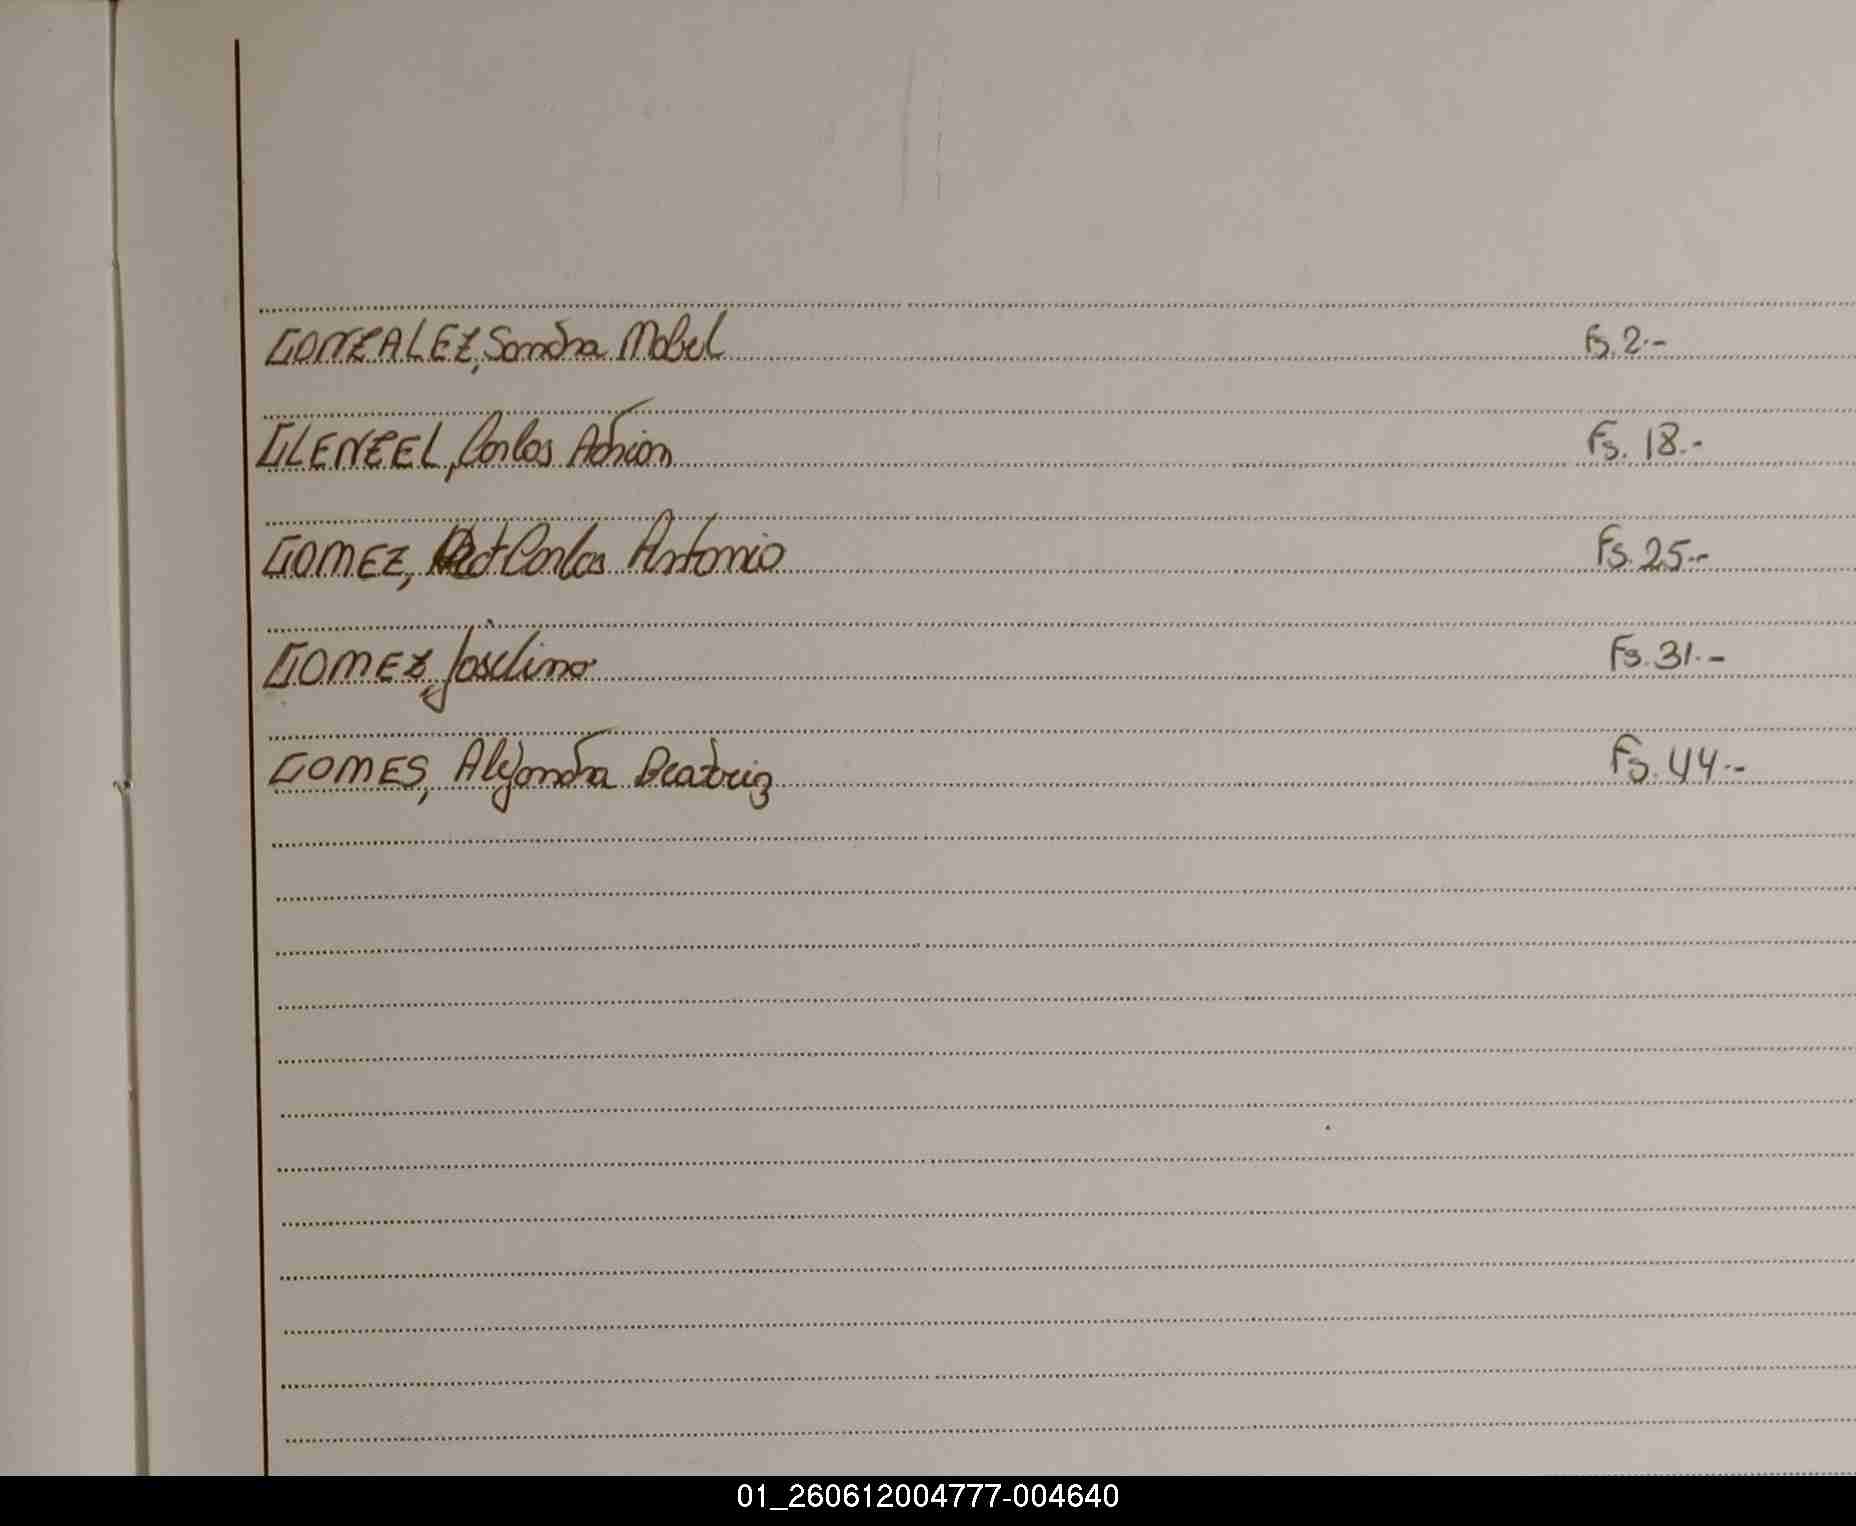 GONZALEZ, Sandra Mabel Fs. 2.-
GLENZEL, Carlos Adrian Fs. 18.-
GOMEZ, Carlos Antonio Fs. 25.-
GOMEZ, Joselino Fs. 31.-
GOMES, Alejandra Beatriz Fs. 44.-
01_260612004777-004640